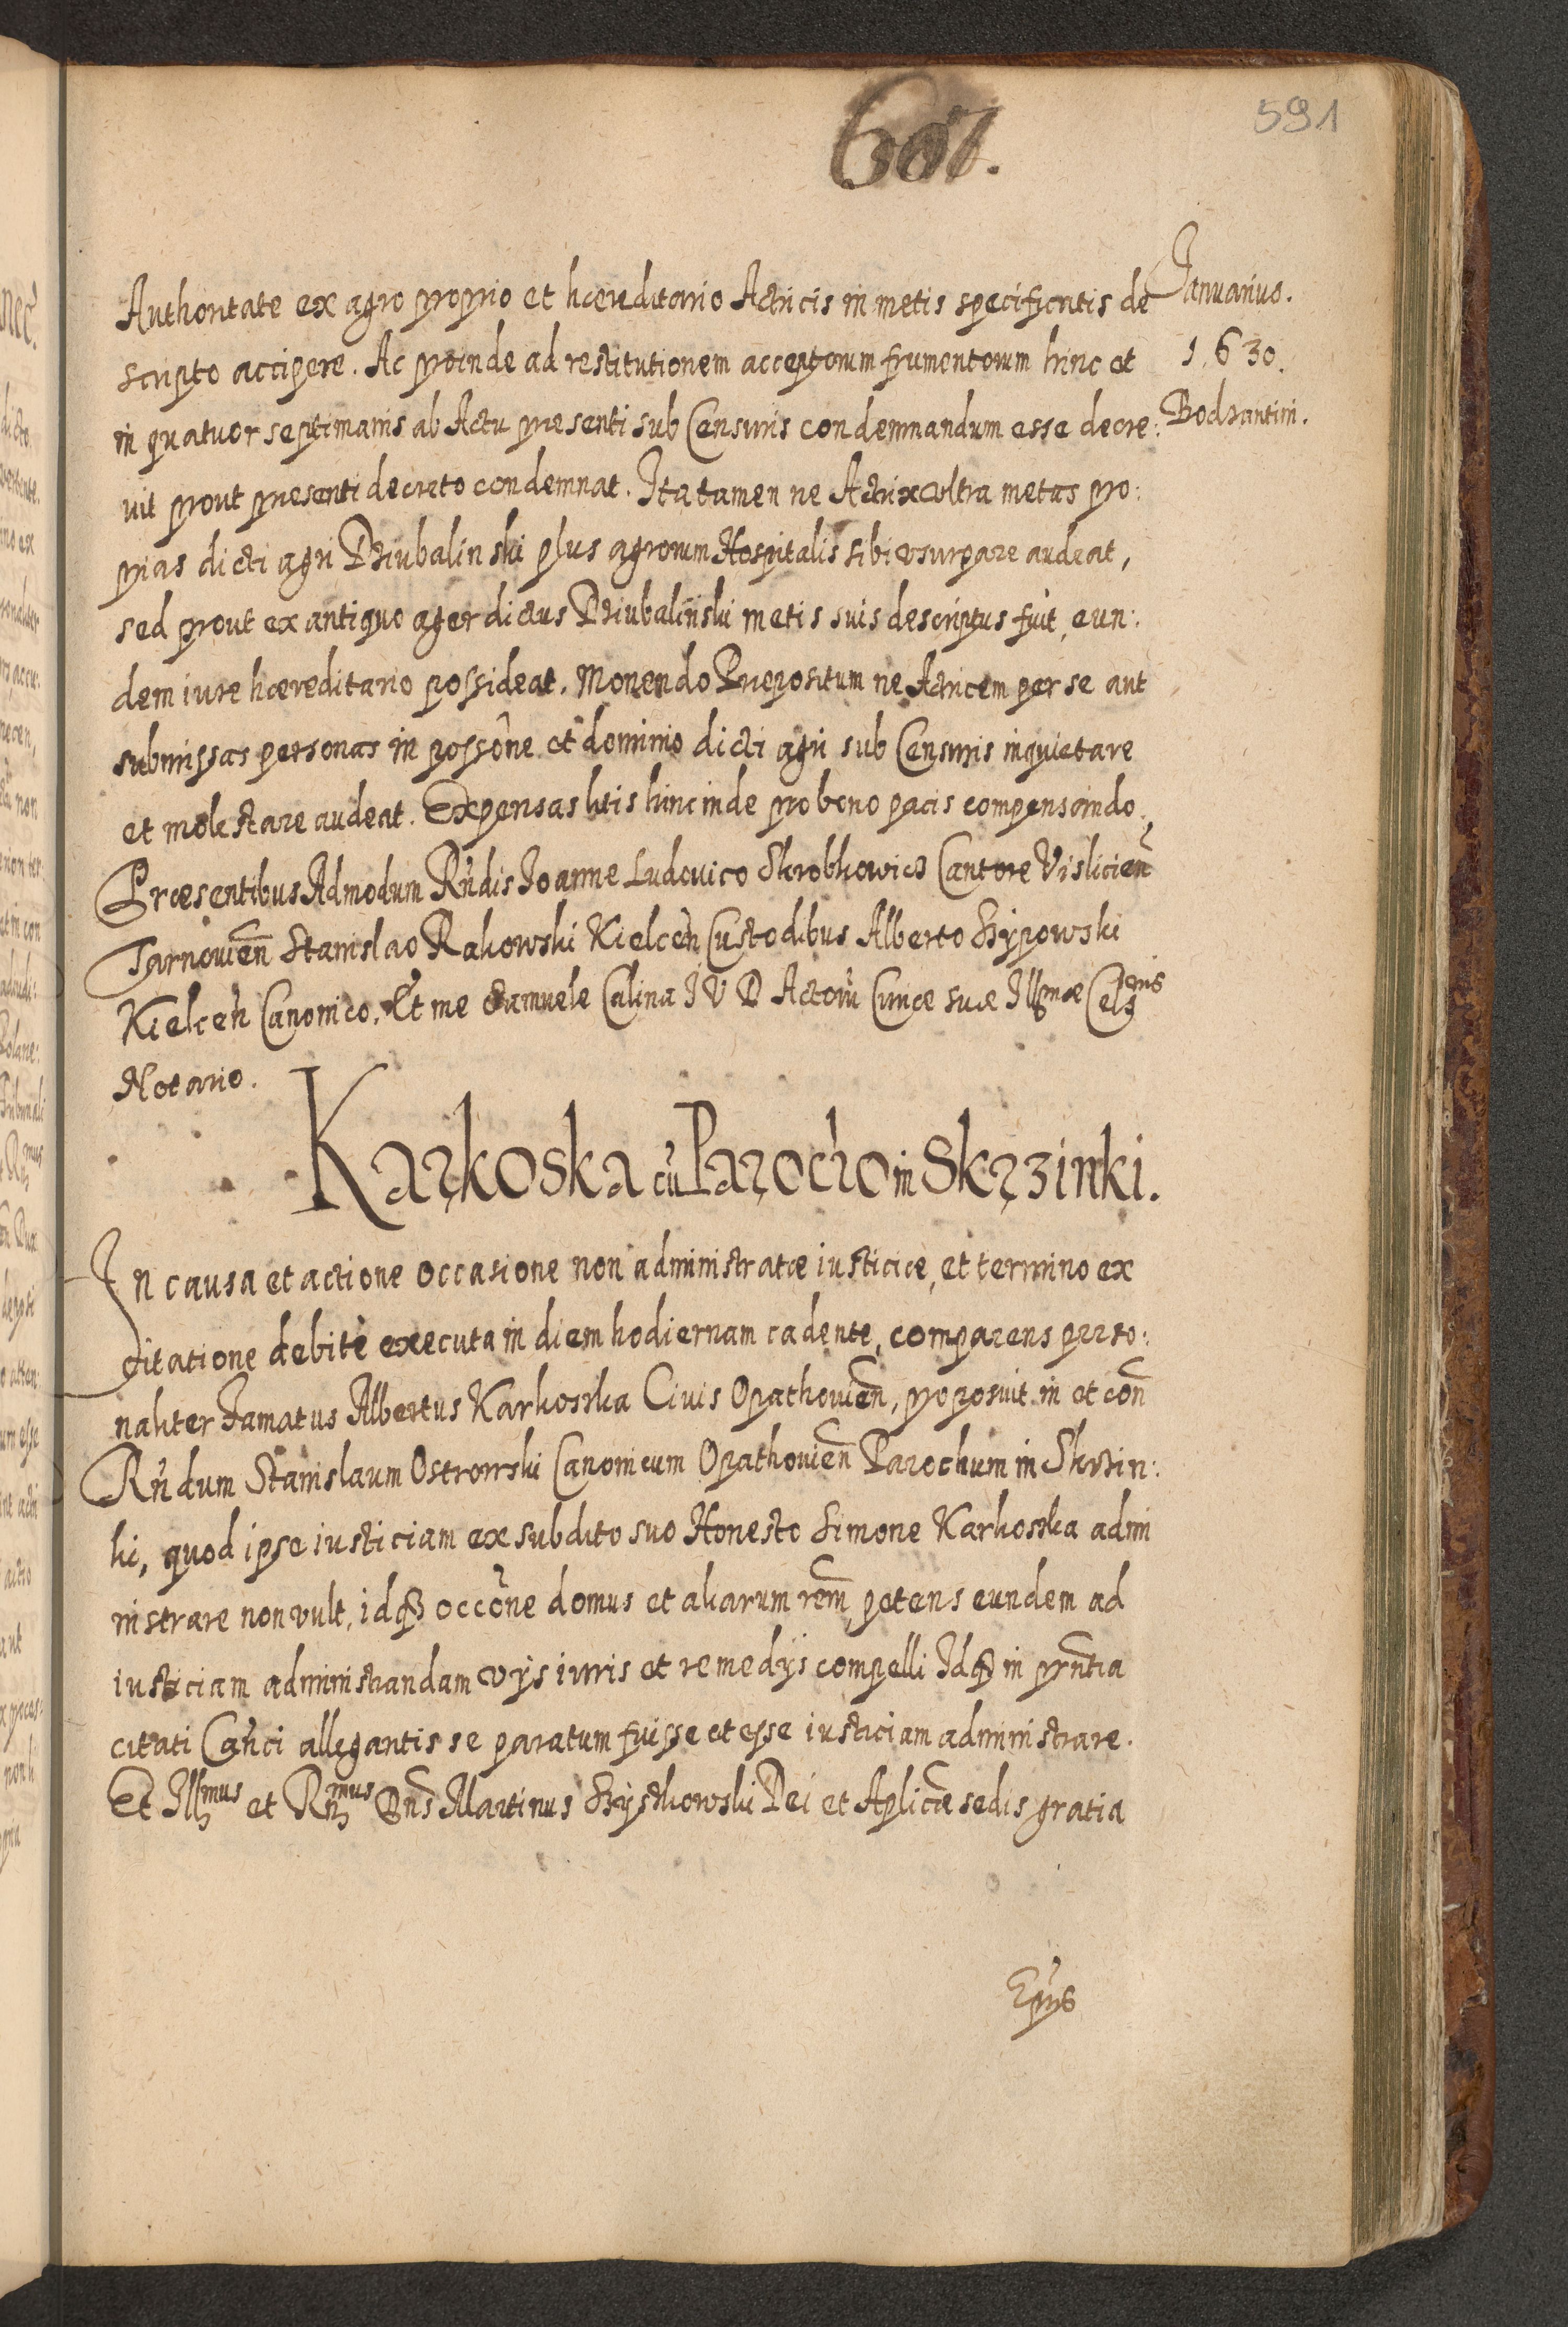 601.
591
Januarius.
1630.
Bodzantini.
Authoritate ex agro proprio et hæreditario Actricis in metis specificatis de
scripto accipere. Ac proinde ad restitutionem acceptorum frumentorum hinc et
in quatuor septimanis ab Actu præsenti sub Censuris condemnandum esse decre:
uit prout præsenti decreto condemnat. Ita tamen ne Actrix vltra metas pro:
prias dicti agri Dziubalinski plus agrorum Hospitalis sibi vsurpare audeat,
sed prout ex antiquo ager dictus Dziubalinski metis suis descriptus fuit, eun:
dem iure hæreditario possideat. Monendo Præpositum ne Actricem per se aut
submissas personas in possõne et dominio dicti agri sub Censuris inquietare
et molestare audeat. Expensas litis hinc inde pro bono pacis compensando.
Præsentibus Admodum Rñdis Joanne Ludovico Skrobkowicz Cantore Visliciẽn
Tarnouiẽn Stanislao Rakowski Kielceñ Custodibus Alberto Szypowski
Kielceñ Canonico. Et me Samuele Calina I V D Actorũ Curiæ suæ Illmæ Celsnis
Notario.
Karkoska cũ Parocho in Skrzinki.
In causa et actione occasione non administratæ iusticiæ, et termino ex
citatione debitè executa in diem hodiernam cadente, comparens perso:
naliter Famatus Albertus Karkoska Ciuis Opathouiẽn, proposuit in et cõn
Rñdum Stanislaum Ostrowski Canonicum Opathouiẽn Parochum in Skrzin:
ki, quod ipse iusticiam ex subdito suo Honesto Simone Karkoska admi
nistrare non vult, idq occõne domus et aliarum rerũm, petens eundem ad
iusticiam administrandam vijs iuris et remedijs compelli Idq in prñtia
citati Cañci allegantis se paratum fuisse et esse iusticiam administrare.
Et Illmus et Rmus Dñs Martinus Szyszkowski Dei et Aplicæ sedis gratia
Epũs